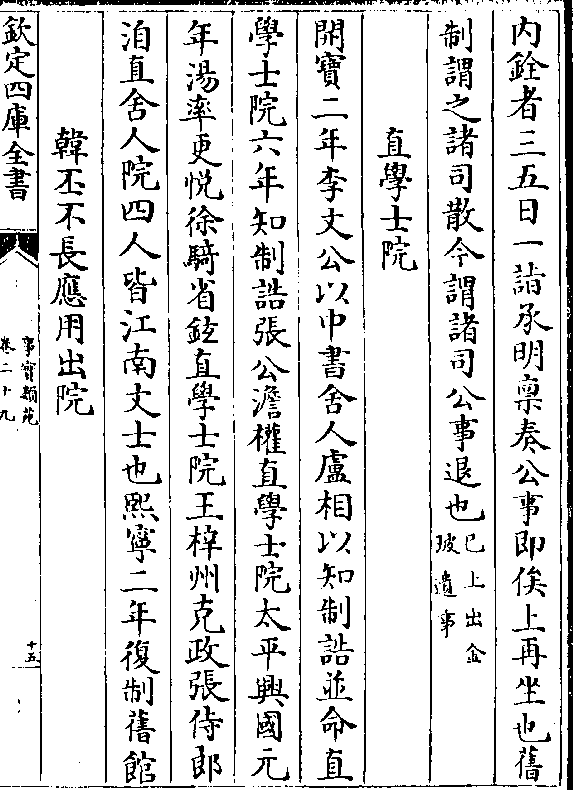 内銓者三五日一詣承明稟奏公事即俟上再坐也舊
制謂之諸司散今謂諸司公事退也已上出金
坡遺事
直學士院
開寳二年李文公以中書舍人盧相以知制誥並命直
學士院六年知制誥張公澹權直學士院太平興國元
年湯率更悦徐騎省鉉直學士院王梓州克政張侍郎
洎直舍人院四人皆江南文士也熙寧二年復制舊館
韓丕不長應用出院
欽定四庫全書
事實類苑
卷二十九
十五